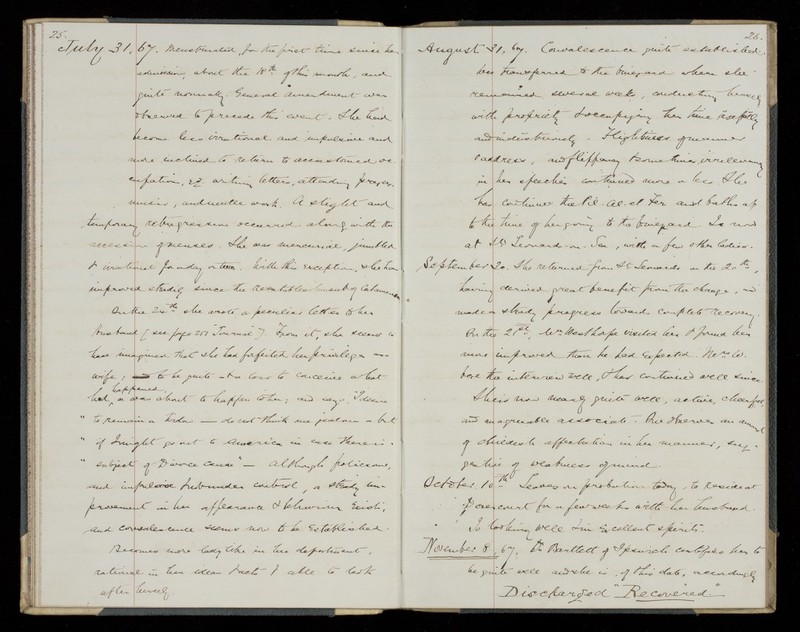 25.
July 31. 67. Menstruated for the first time since her
admission about the 18th of this month, and
quite normally. General amendment was
observed to precede this event. She had
become less irrational and impulsive and
more inclined to return to accustomed oc-
cupation, eg writing letters, attending prayers,
music, and needle work. A slight and
temporary retrogression occurred along with the
accession of menses. She was mercurial, jumbled
& irrational for a day or two. With this exception, she has
improved steadily since the reestablishment of Catamenia
On the 24th she wrote a peculiar letter to her
husband [see page 251 Journal] From it, she seems to
have imagined that she has forfeited her privileges as
wife; to be quite at a loss to conceive what
had happened, or was about to happen to him; and says "I desire
" to remain a — do not think me jealous — but
" if I might go out to America in case there is a
" subject of Divorce cause" — although
and impulsive tendencies under control, a steady im-
provement in her appearance & behaviour exists,
and convalescence seems now to be established.
Becomes more ladylike in her deportment,
rational in her ideas & acts & able to look
after herself.
26.
August 31. 67. Convalescence quite established.
Was transferred to the Vineyard where she
remained several weeks, conducting herself
with propriety & occupying her time usefully
and industriously. Flightiness of manner
& address, and flippancy & sometimes irrelevancy
in her speeches continued more or less. She
has continued the and baths up
to the time of her going to the Vineyard. Is now
at St Leonard-on-Sea, with a few other ladies.
September 30. She returned from St Leonards on the 20th,
having derived great benefit from the change, and
made steady progress toward complete recovery.
On the 21st, Mr visited her & found her
more improved than he had expected. Mrs W.
bore the interview well, & has continued well since.
She is now nearly quite well, active, cheerful,
and an agreeable associate. One observes an amount
of childish affectation in her manner, sug-
gestive of weakness of mind.
October 10th Leaves on probation today, to reside at
Dovercourt for a few weeks with her husband.
Is looking well & in excellent spirits.
November 8. 67. Dr Bartlett of Ipswich certifies her to
be quite well and she is, of this date, accordingly
Discharged "Recovered"